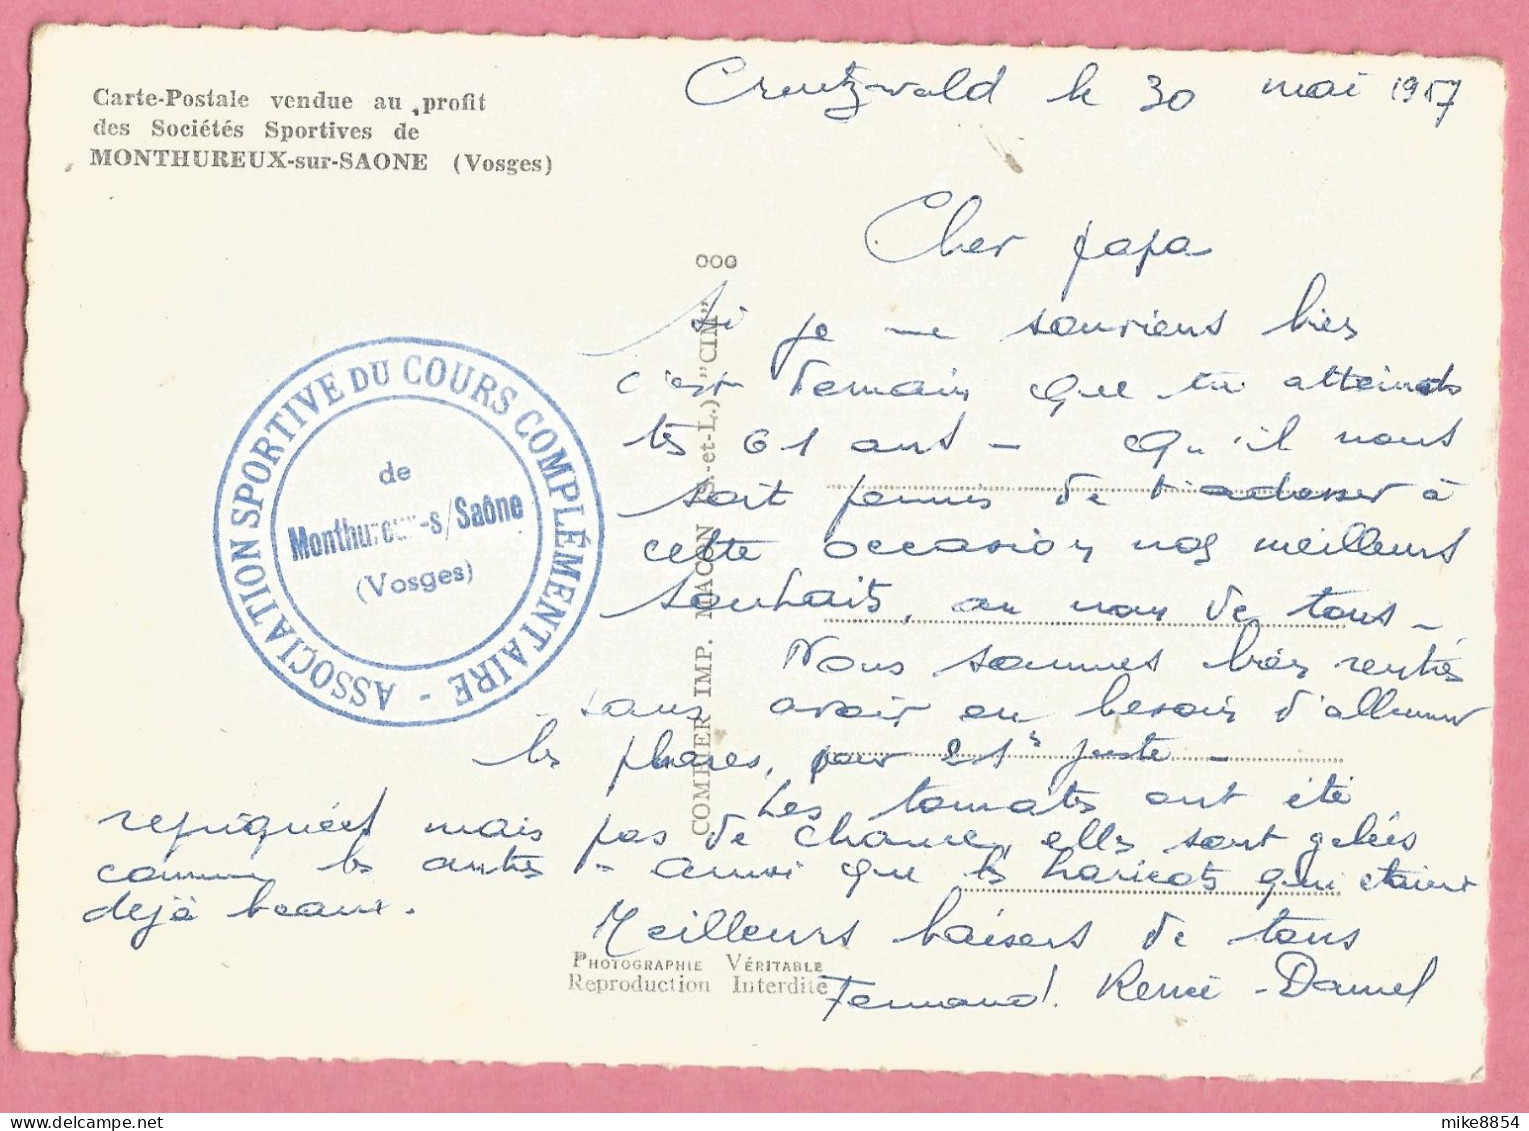 Carte-Postale vendue au profit
des Sociétés Sportives de
MONTHUREUX-sur-SAONE (Vosges)
Creutzwald le 30 mai 1957
Cher papa
Si je me souviens bien
c'est demain que tu atteinds
tes 61 ans - Qu'il nous
soit permis de t'adresser à
cette occasion nos meilleurs
souhaits, au nom de tous -
Nous sommes bien rentrés
sans avoir eu besoin d'allumer
les phares, pour 21h juste -
Les tomates ont été
repiquées mais pas de chance, elles sont gelées
comme les autres - ainsi que les haricots qui étaient
déjà beaux.
Meilleurs baisers de tous
Fernand. Renée - Daniel
ASSOCIATION SPORTIVE DU COURS COMPLÉMENTAIRE -
de
Monthureux-s/Saône
(Vosges)
COMBIER IMP. MACON (S.-et-L.) "CIM"
PHOTOGRAPHIE VÉRITABLE
Reproduction Interdite
mike8854